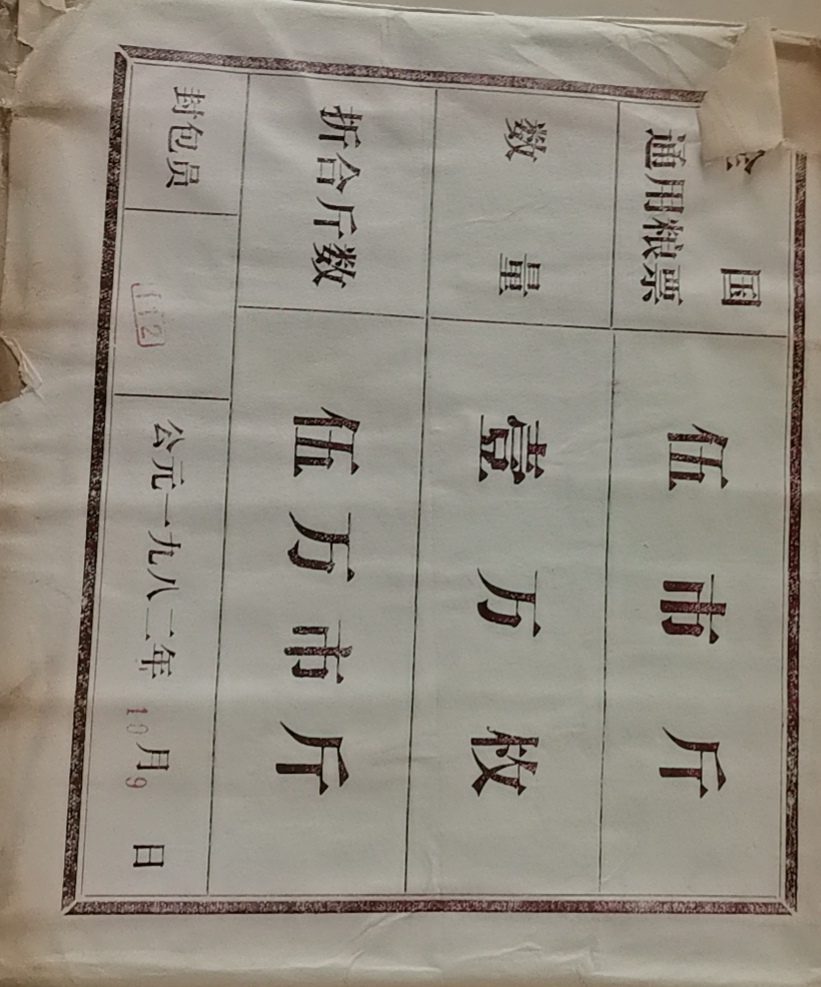 全国
通用粮票 伍市斤
数量 壹万枚
折合斤数 伍万市斤
封包员 112 公元一九八二年10月9日